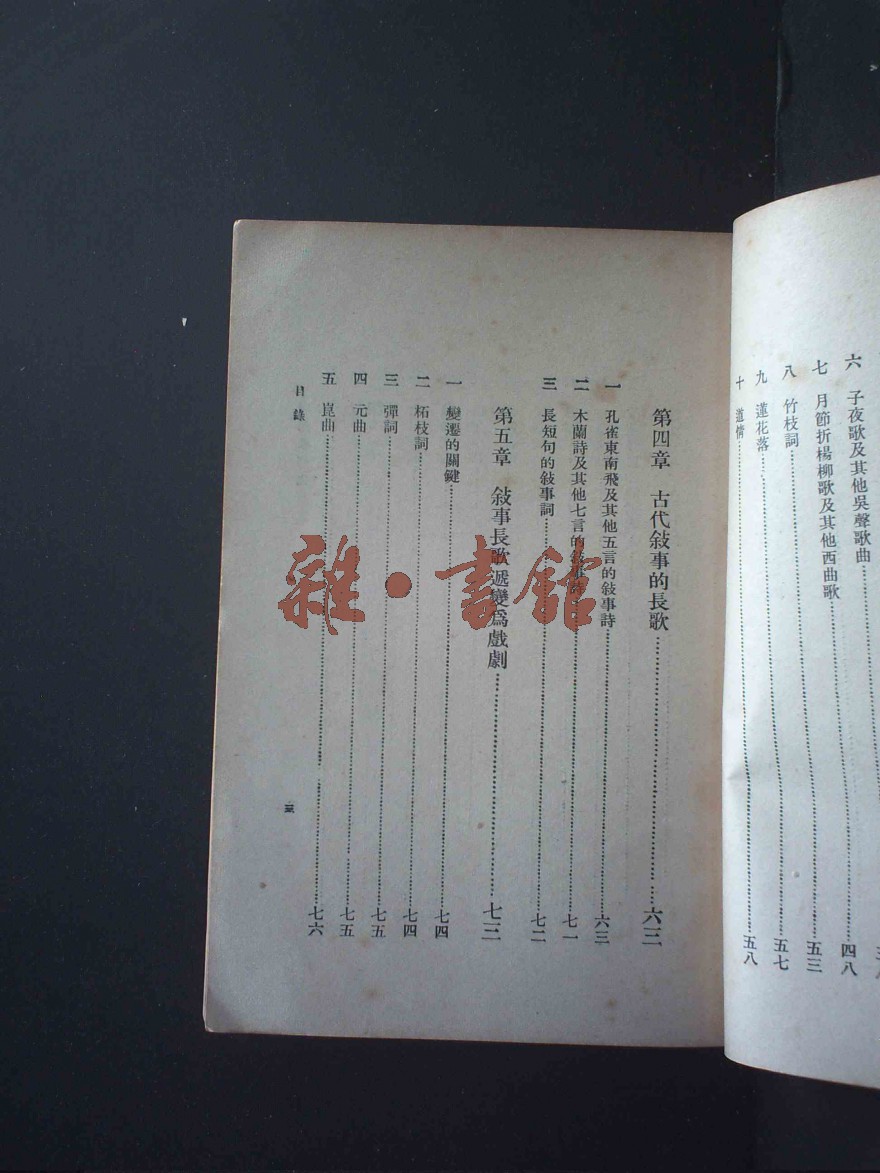 六 子夜歌及其他吳聲歌曲……四八
七 月節折楊柳歌及其他西曲歌……五三
八 竹枝詞……五七
九 蓮花落
十 道情……五八
第四章 古代敍事的長歌……六三
一 孔雀東南飛及其他五言的敍事詩……六三
二 木蘭詩及其他七言的敍事詩……七一
三 長短句的敍事詞……七二
第五章 敍事長歌遞變爲戲劇……七三
一 變遷的關鍵……七四
二 柘枝詞……七四
三 彈詞……七五
四 元曲……七五
五 崑曲……七六
目錄
雜·書館